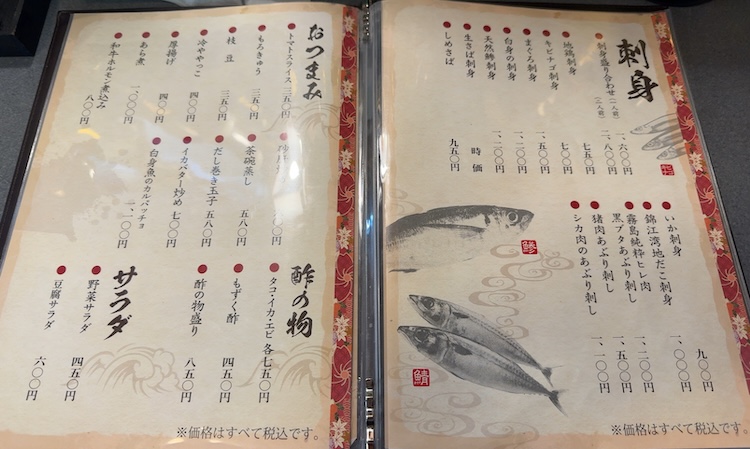 刺身
刺身盛り合わせ(一人前) 一、六〇〇円
(二人前) 二、八〇〇円
地鶏刺身 七五〇円
キビナゴ刺身 七〇〇円
まぐろ刺身 一、五〇〇円
白身の刺身 一、二〇〇円
天然鯵刺身 一、二〇〇円
生さば刺身 時価
しめさば 九五〇円
いか刺身 九〇〇円
錦江湾地だこ刺身 一、〇〇〇円
霧島純粋ヒレ肉
黒ブタあぶり刺し 一、二〇〇円
猪肉あぶり刺し 一、五〇〇円
シカ肉のあぶり刺し 一、一〇〇円
鯵
鯖
※価格はすべて税込です。
おつまみ
トマトスライス 三五〇円
もろきゅう 三五〇円
枝豆 三五〇円
冷ややっこ 四〇〇円
厚揚げ 四〇〇円
あら煮 一、〇〇〇円
和牛ホルモン煮込み 八〇〇円
円
茶碗蒸し 五八〇円
だし巻き玉子 五八〇円
イカバター炒め 七〇〇円
白身魚のカルパッチョ 一、一〇〇円
酢の物
タコ・イカ・エビ 各七五〇円
もずく酢 四五〇円
酢の物盛り 八五〇円
サラダ
野菜サラダ 四五〇円
豆腐サラダ 六〇〇円
※価格はすべて税込です。